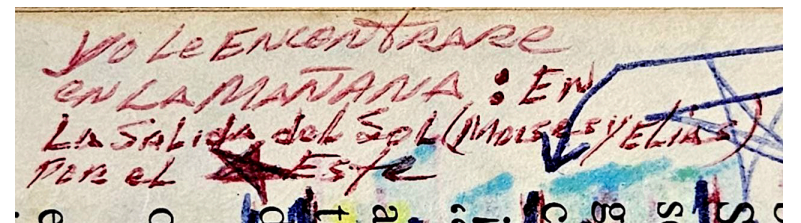 yo Le ENCONTRARE
EN LA MAÑANA : EN
LA SALIDA del SOL (MOISES Y ELIAS)
POR el ESTE